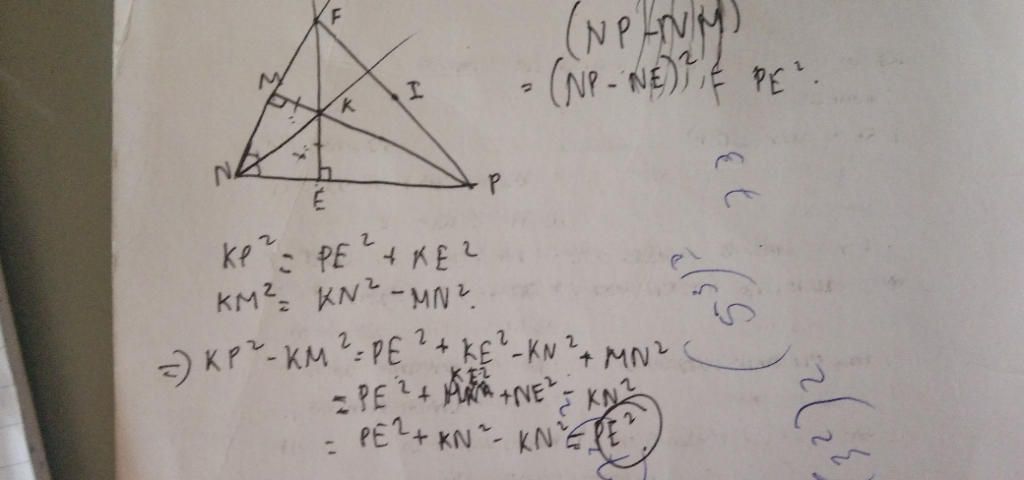 F
M
K
I
N
E
P
(NP - NM)
= (NP - NE)² = PE².
KP² = PE² + KE²
KM² = KN² - MN².
=> KP² - KM² = PE² + KE² - KN² + MN²
= PE² + KE² + NE² - KN²
= PE² + KN² - KN² = PE².